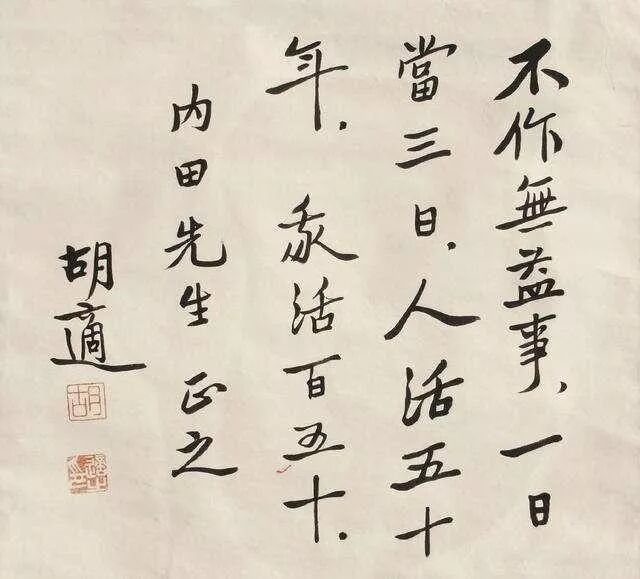 不作無益事、一日
當三日、人活五十
年、我活百五十.
内田先生 正之
胡適
胡